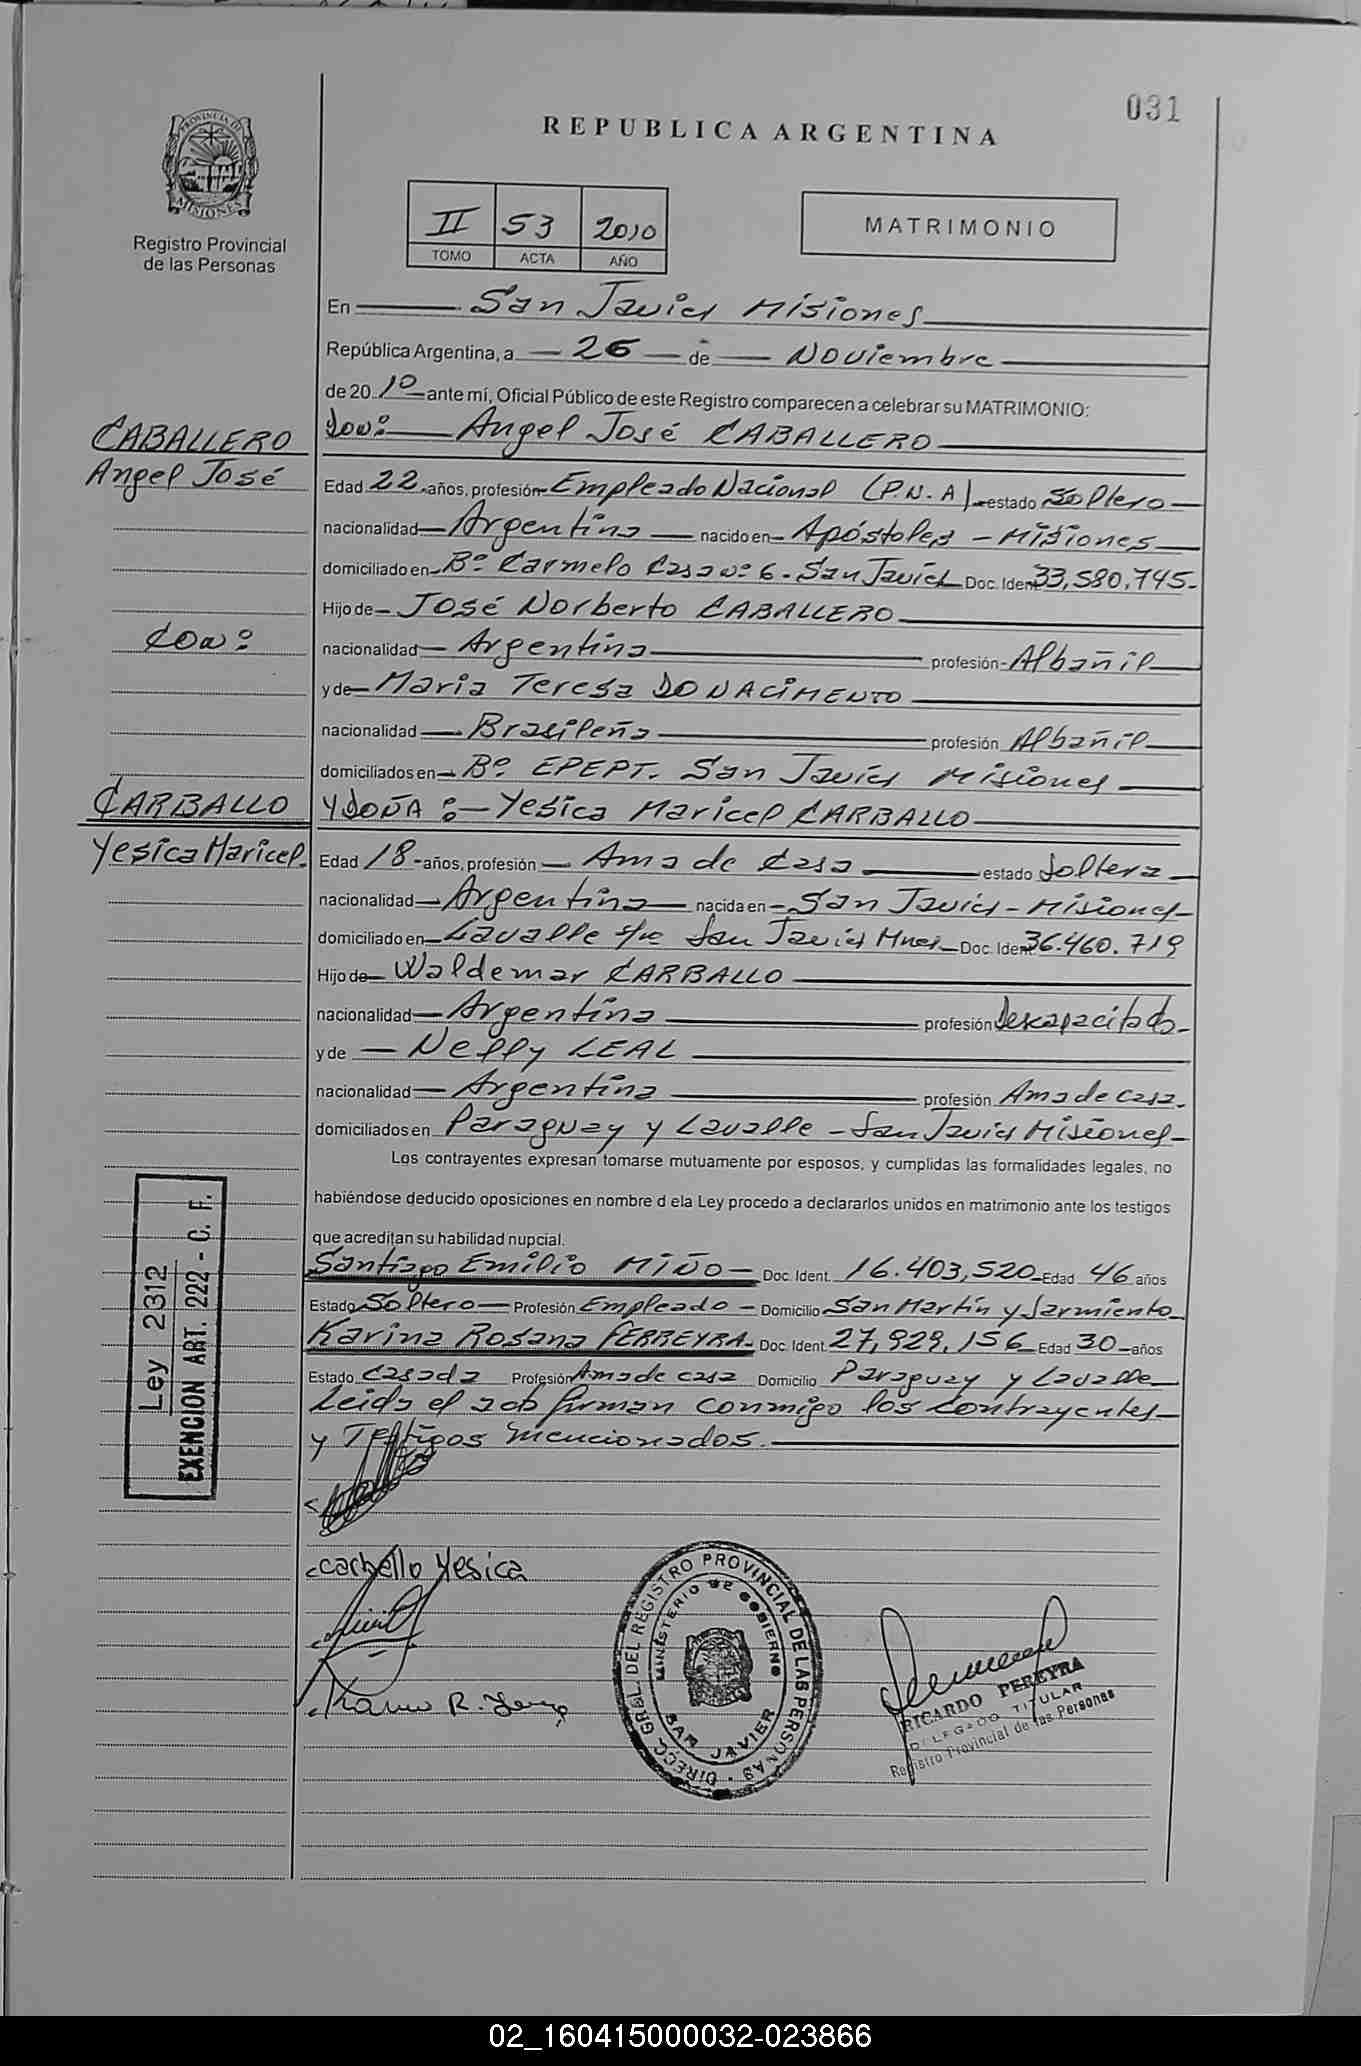 031
REPUBLICA ARGENTINA
PROVINCIA DE
MISIONES
Registro Provincial
de las Personas
II 53 2010
TOMO ACTA AÑO
MATRIMONIO
En San Javier Misiones
República Argentina, a 26 de Noviembre
de 2010 ante mí, Oficial Público de este Registro comparecen a celebrar su MATRIMONIO:
CABALLERO
Angel José
Don: Angel José CABALLERO
Edad 22 años, profesión Empleado Nacional (P.N.A) estado Soltero
nacionalidad Argentina nacido en Apóstoles - Misiones
domiciliado en Bº Carmelo Casa Nº 6 - San Javier Doc. Ident. 33,580,745-
Hijo de José Norberto CABALLERO
Con:
nacionalidad Argentina profesión Albañil
y de Maria Teresa DO NACIMENTO
nacionalidad Brasileña profesión Albañil
domiciliados en Bº EPEPT. San Javier Misiones
CARBALLO
Yesica Maricel.
Y DOÑA: Yesica Maricel CARBALLO
Edad 18 años, profesión Ama de Casa estado Soltera
nacionalidad Argentina nacida en San Javier - Misiones
domiciliado en Lavalle s/nº San Javier Mnes Doc. Ident. 36.460.719
Hijo de Waldemar CARBALLO
nacionalidad Argentina profesión Descapacitado
y de Nelly LEAL
nacionalidad Argentina profesión Ama de casa.
domiciliados en Paraguay y Lavalle - San Javier Misiones
Los contrayentes expresan tomarse mutuamente por esposos, y cumplidas las formalidades legales, no
habiéndose deducido oposiciones en nombre d ela Ley procedo a declararlos unidos en matrimonio ante los testigos
que acreditan su habilidad nupcial.
Santiago Emilio MIÑO Doc. Ident. 16.403,520 Edad 46 años
Estado Soltero Profesión Empleado Domicilio San Martín y Sarmiento
Karina Rosana FERREYRA Doc. Ident. 27,929,156 Edad 30 años
Estado Casada Profesión Ama de casa Domicilio Paraguay y Lavalle
Leida el acta firman conmigo los Contrayentes
y Testigos mencionados.
Ley 2312
EXENCION ART. 222 - C. F.
Carballo Yesica
DIRECC. GRAL. DEL REGISTRO PROVINCIAL DE LAS PERSONAS
MINISTERIO DE GOBIERNO
SAN JAVIER
RICARDO PEREYRA
DELEGADO TITULAR
Registro Provincial de las Personas
02_160415000032-023866